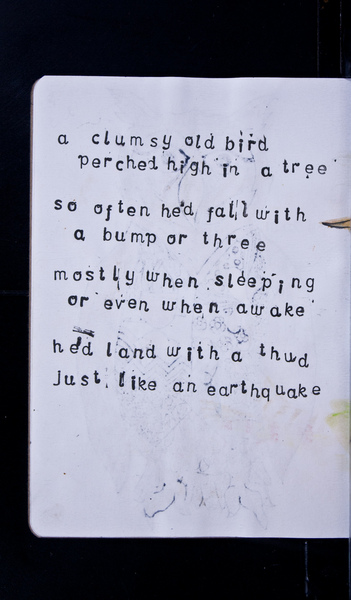 a clumsy old bird
perched high in a tree
so often he'd fall with
a bump or three
mostly when sleeping
or even when awake
he'd land with a thud
just like an earthquake